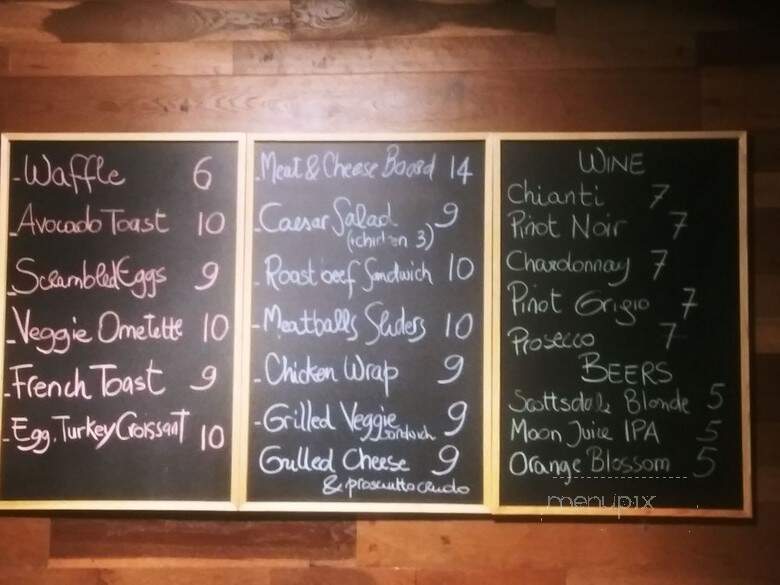 - Waffle 6
- Avocado Toast 10
- Scrambled Eggs 9
- Veggie Omelette 10
- French Toast 9
- Egg, Turkey Croissant 10
- Meat & Cheese Board 14
- Caesar Salad 9
(+chicken 3)
- Roast beef Sandwich 10
- Meatballs Sliders 10
- Chicken Wrap 9
- Grilled Veggie 9
Sandwich
Grilled Cheese 9
& prosciutto crudo
WINE
Chianti 7
Pinot Noir 7
Chardonnay 7
Pinot Grigio 7
Prosecco 7
BEERS
Scottsdale Blonde 5
Moon Juice IPA 5
Orange Blossom 5
menupix